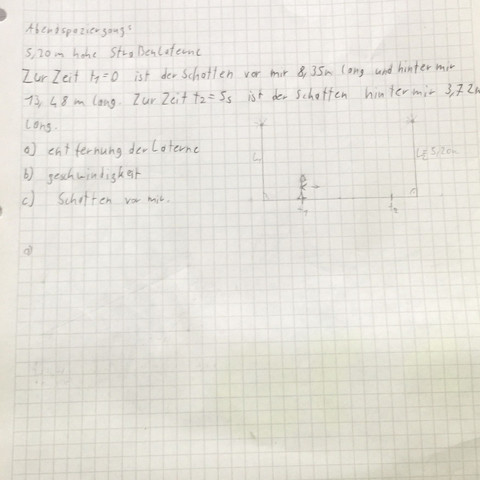 Abendspaziergang:
5,20 m hohe Straßenlaterne
Zur Zeit t₁=0 ist der Schatten vor mir 8,35m long und hinter mir
13,48 m long. Zur Zeit t₂=5s ist der Schatten hinter mir 3,72m
long.
a) entfernung der Laterne
b) geschwindigkeit
c) Schatten vor mir.
L
L=5,20m
t₁
t₂
a)